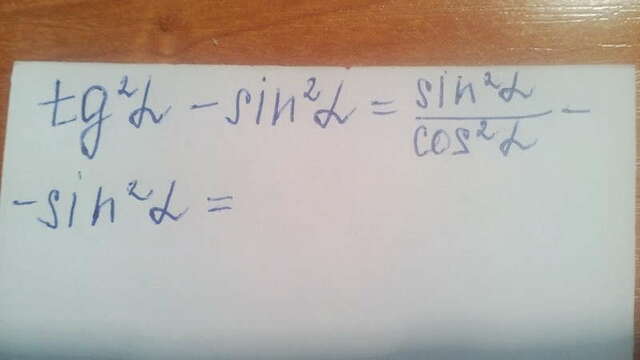 tg²α - sin²α = sin²α/cos²α -
- sin²α =